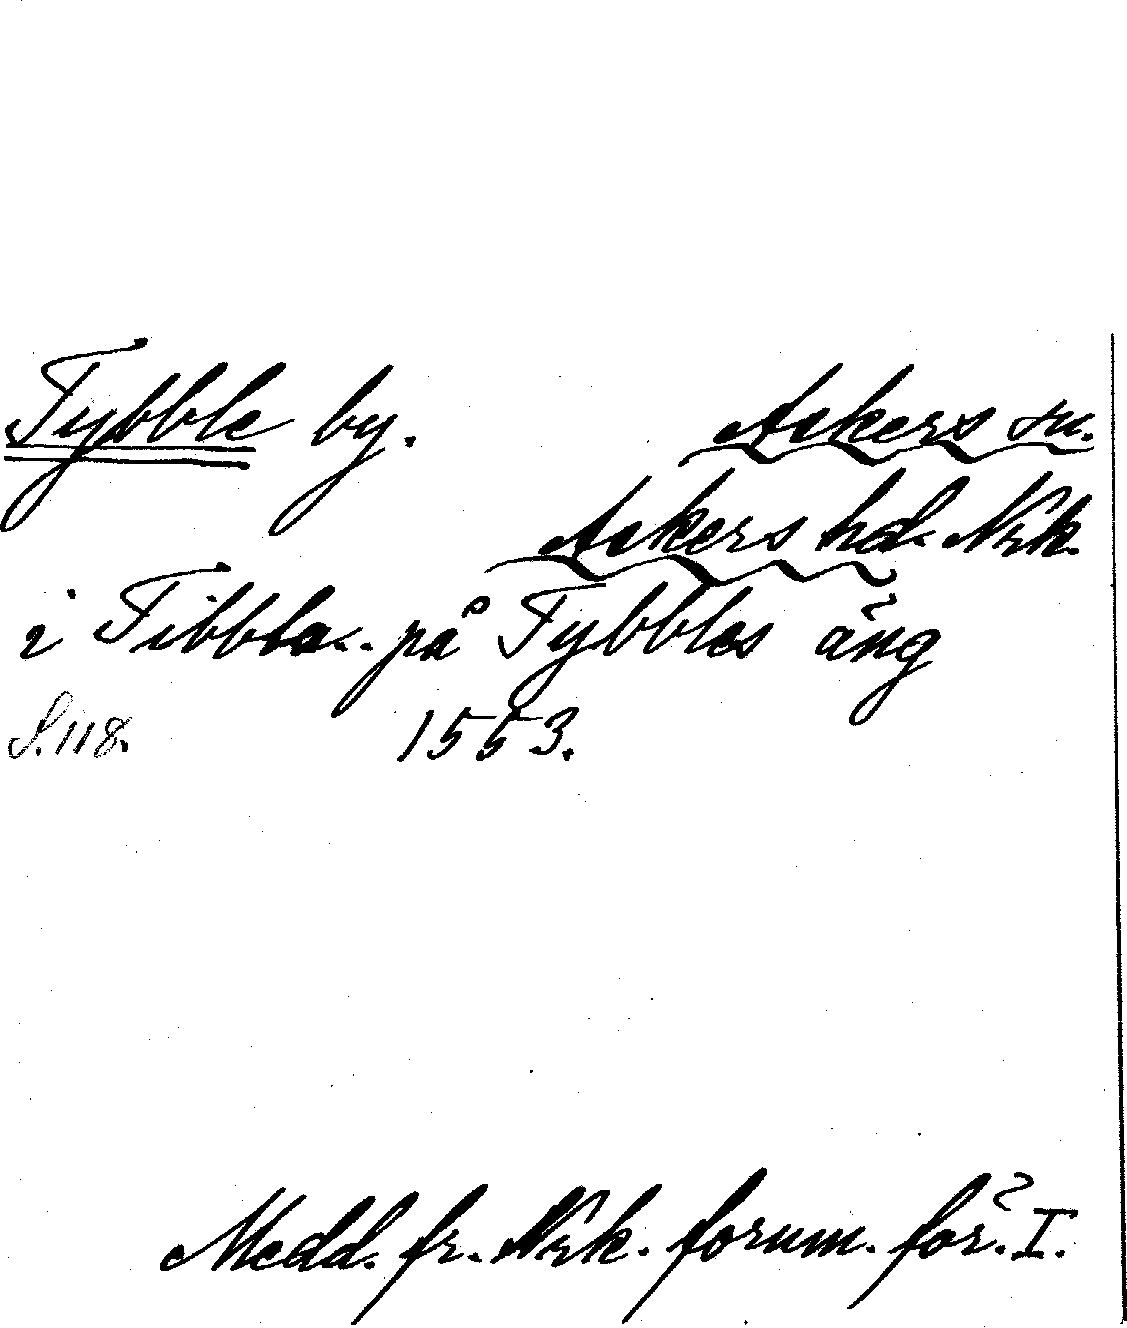 Tybble by. Askers sn.
Askers hd. Nrk.
i Tibbla.. på Tybbles äng
S. 118. 1553.
Medd. fr. Nrk. fornm. för. I.